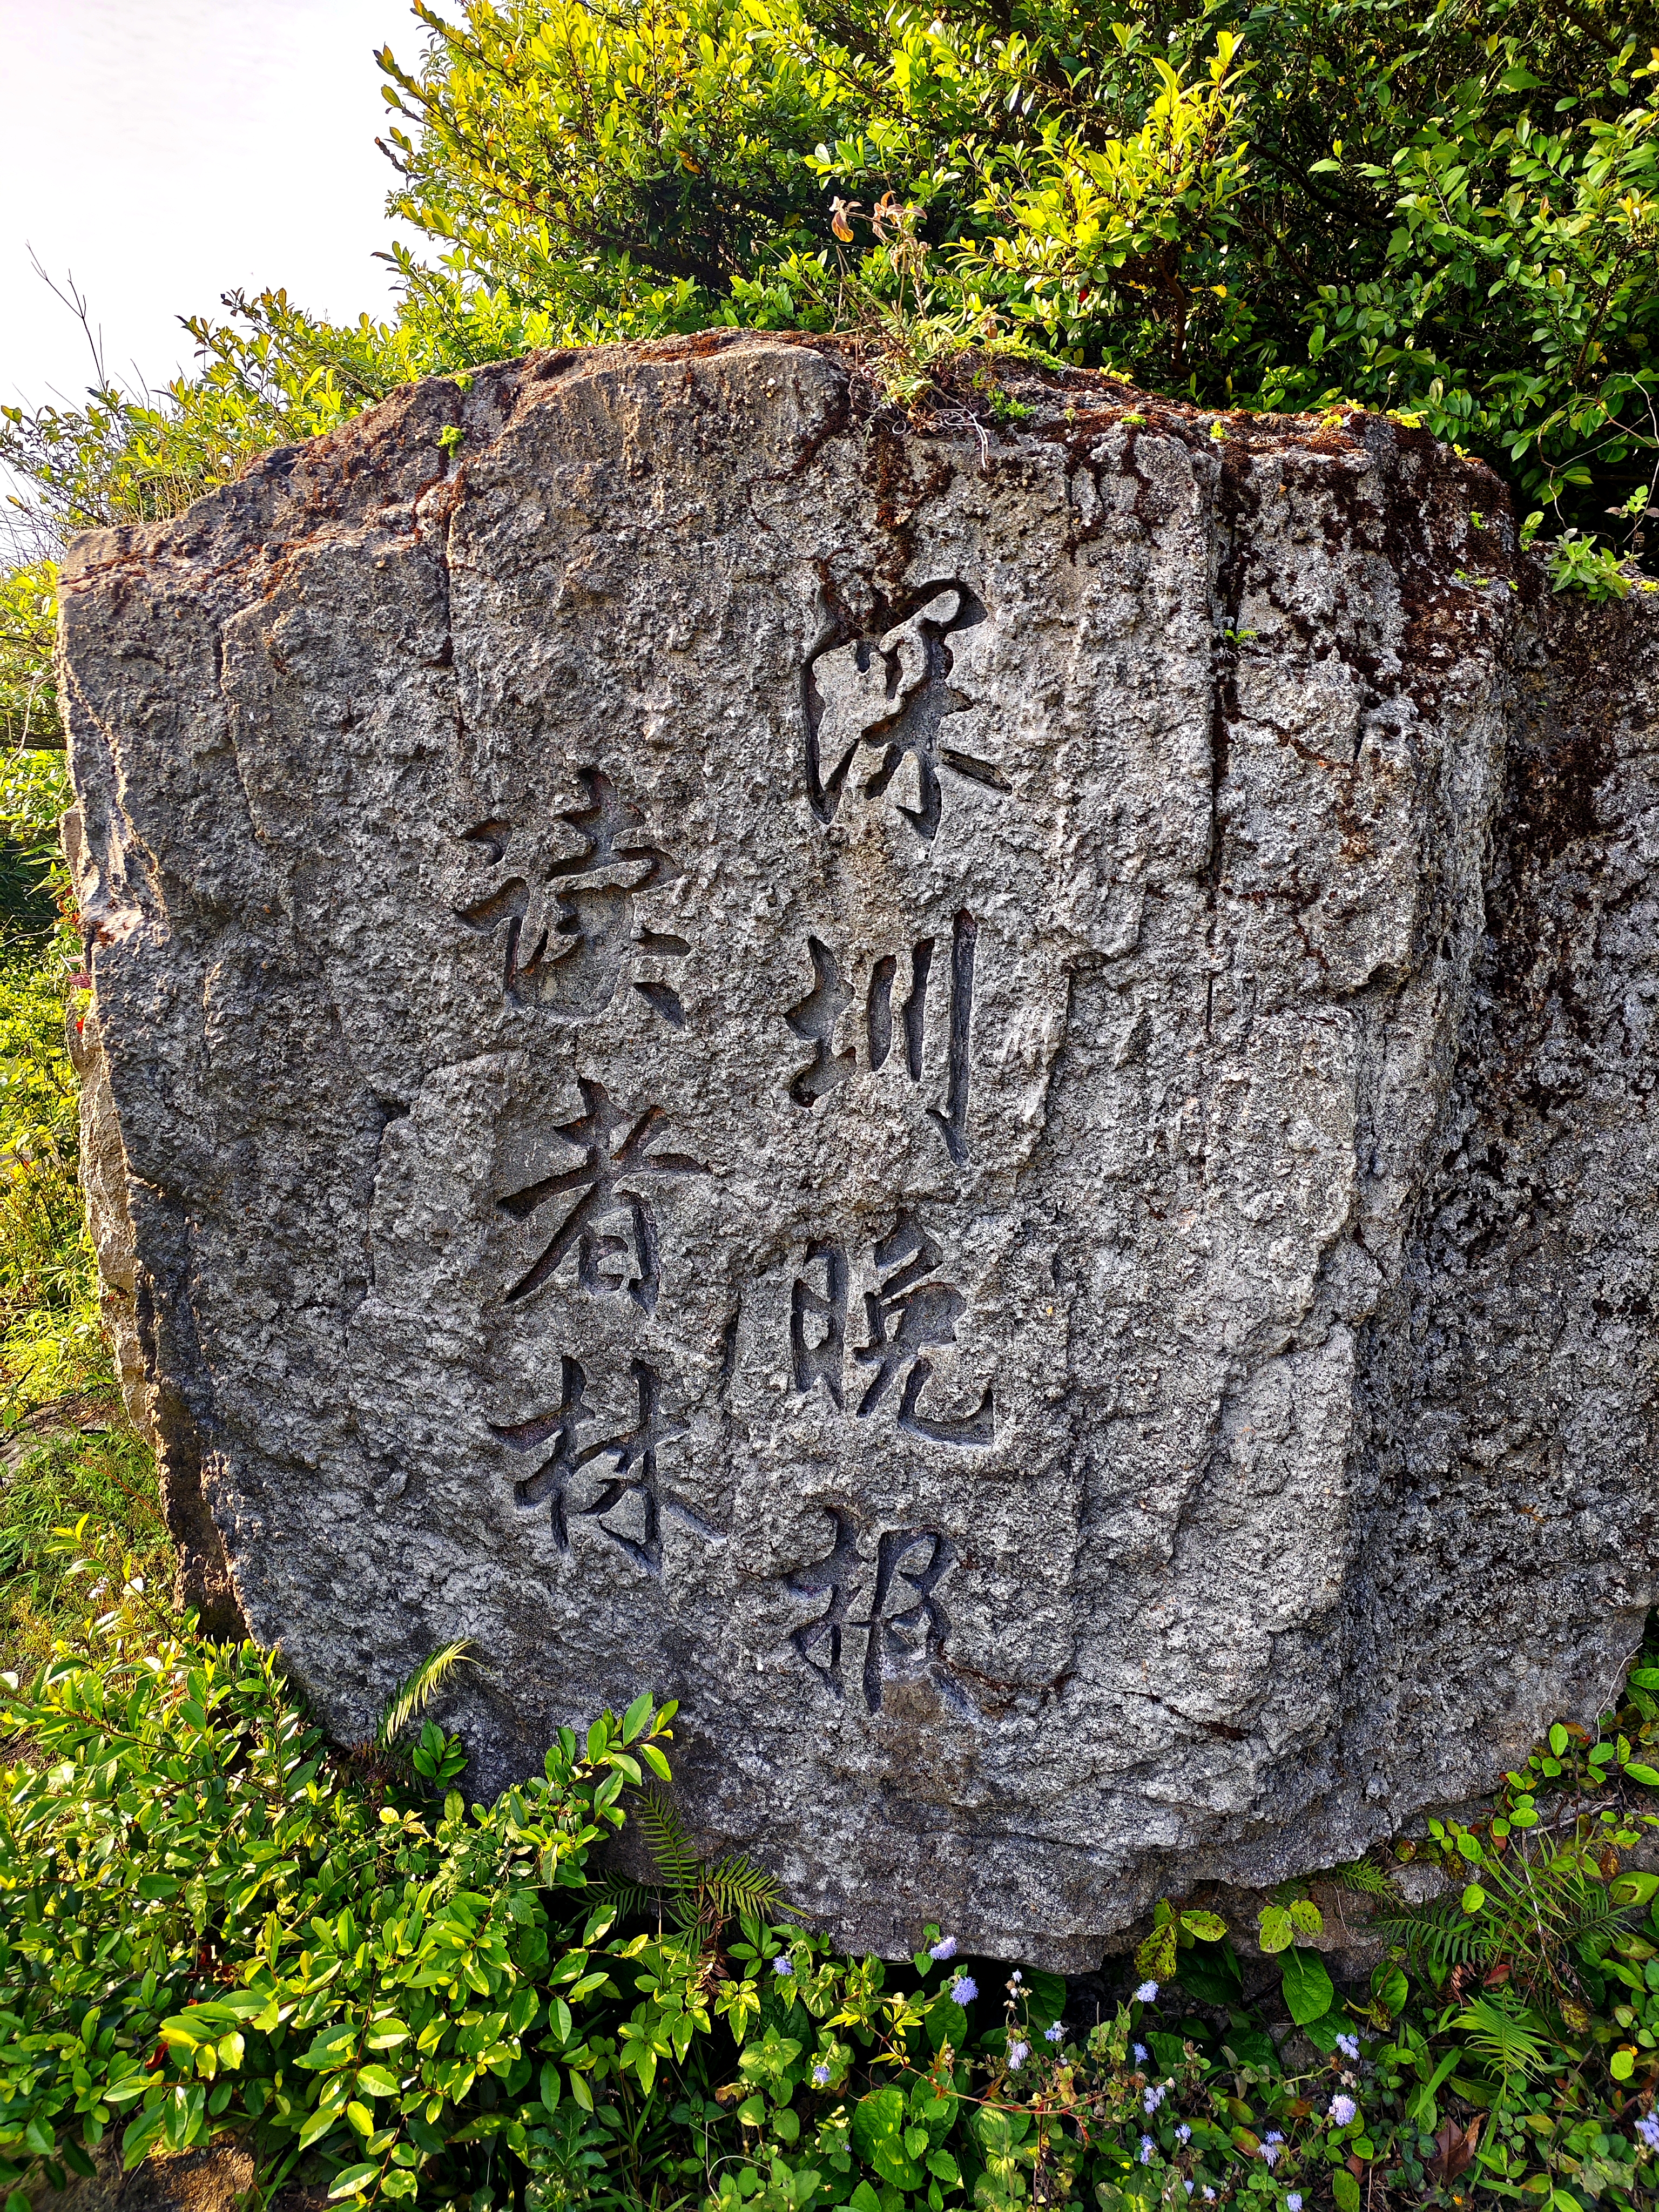 深圳晚报
读者林